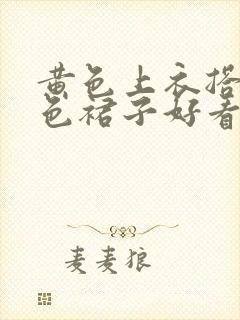 黄色上衣搭
色裙子好看
麦麦狼